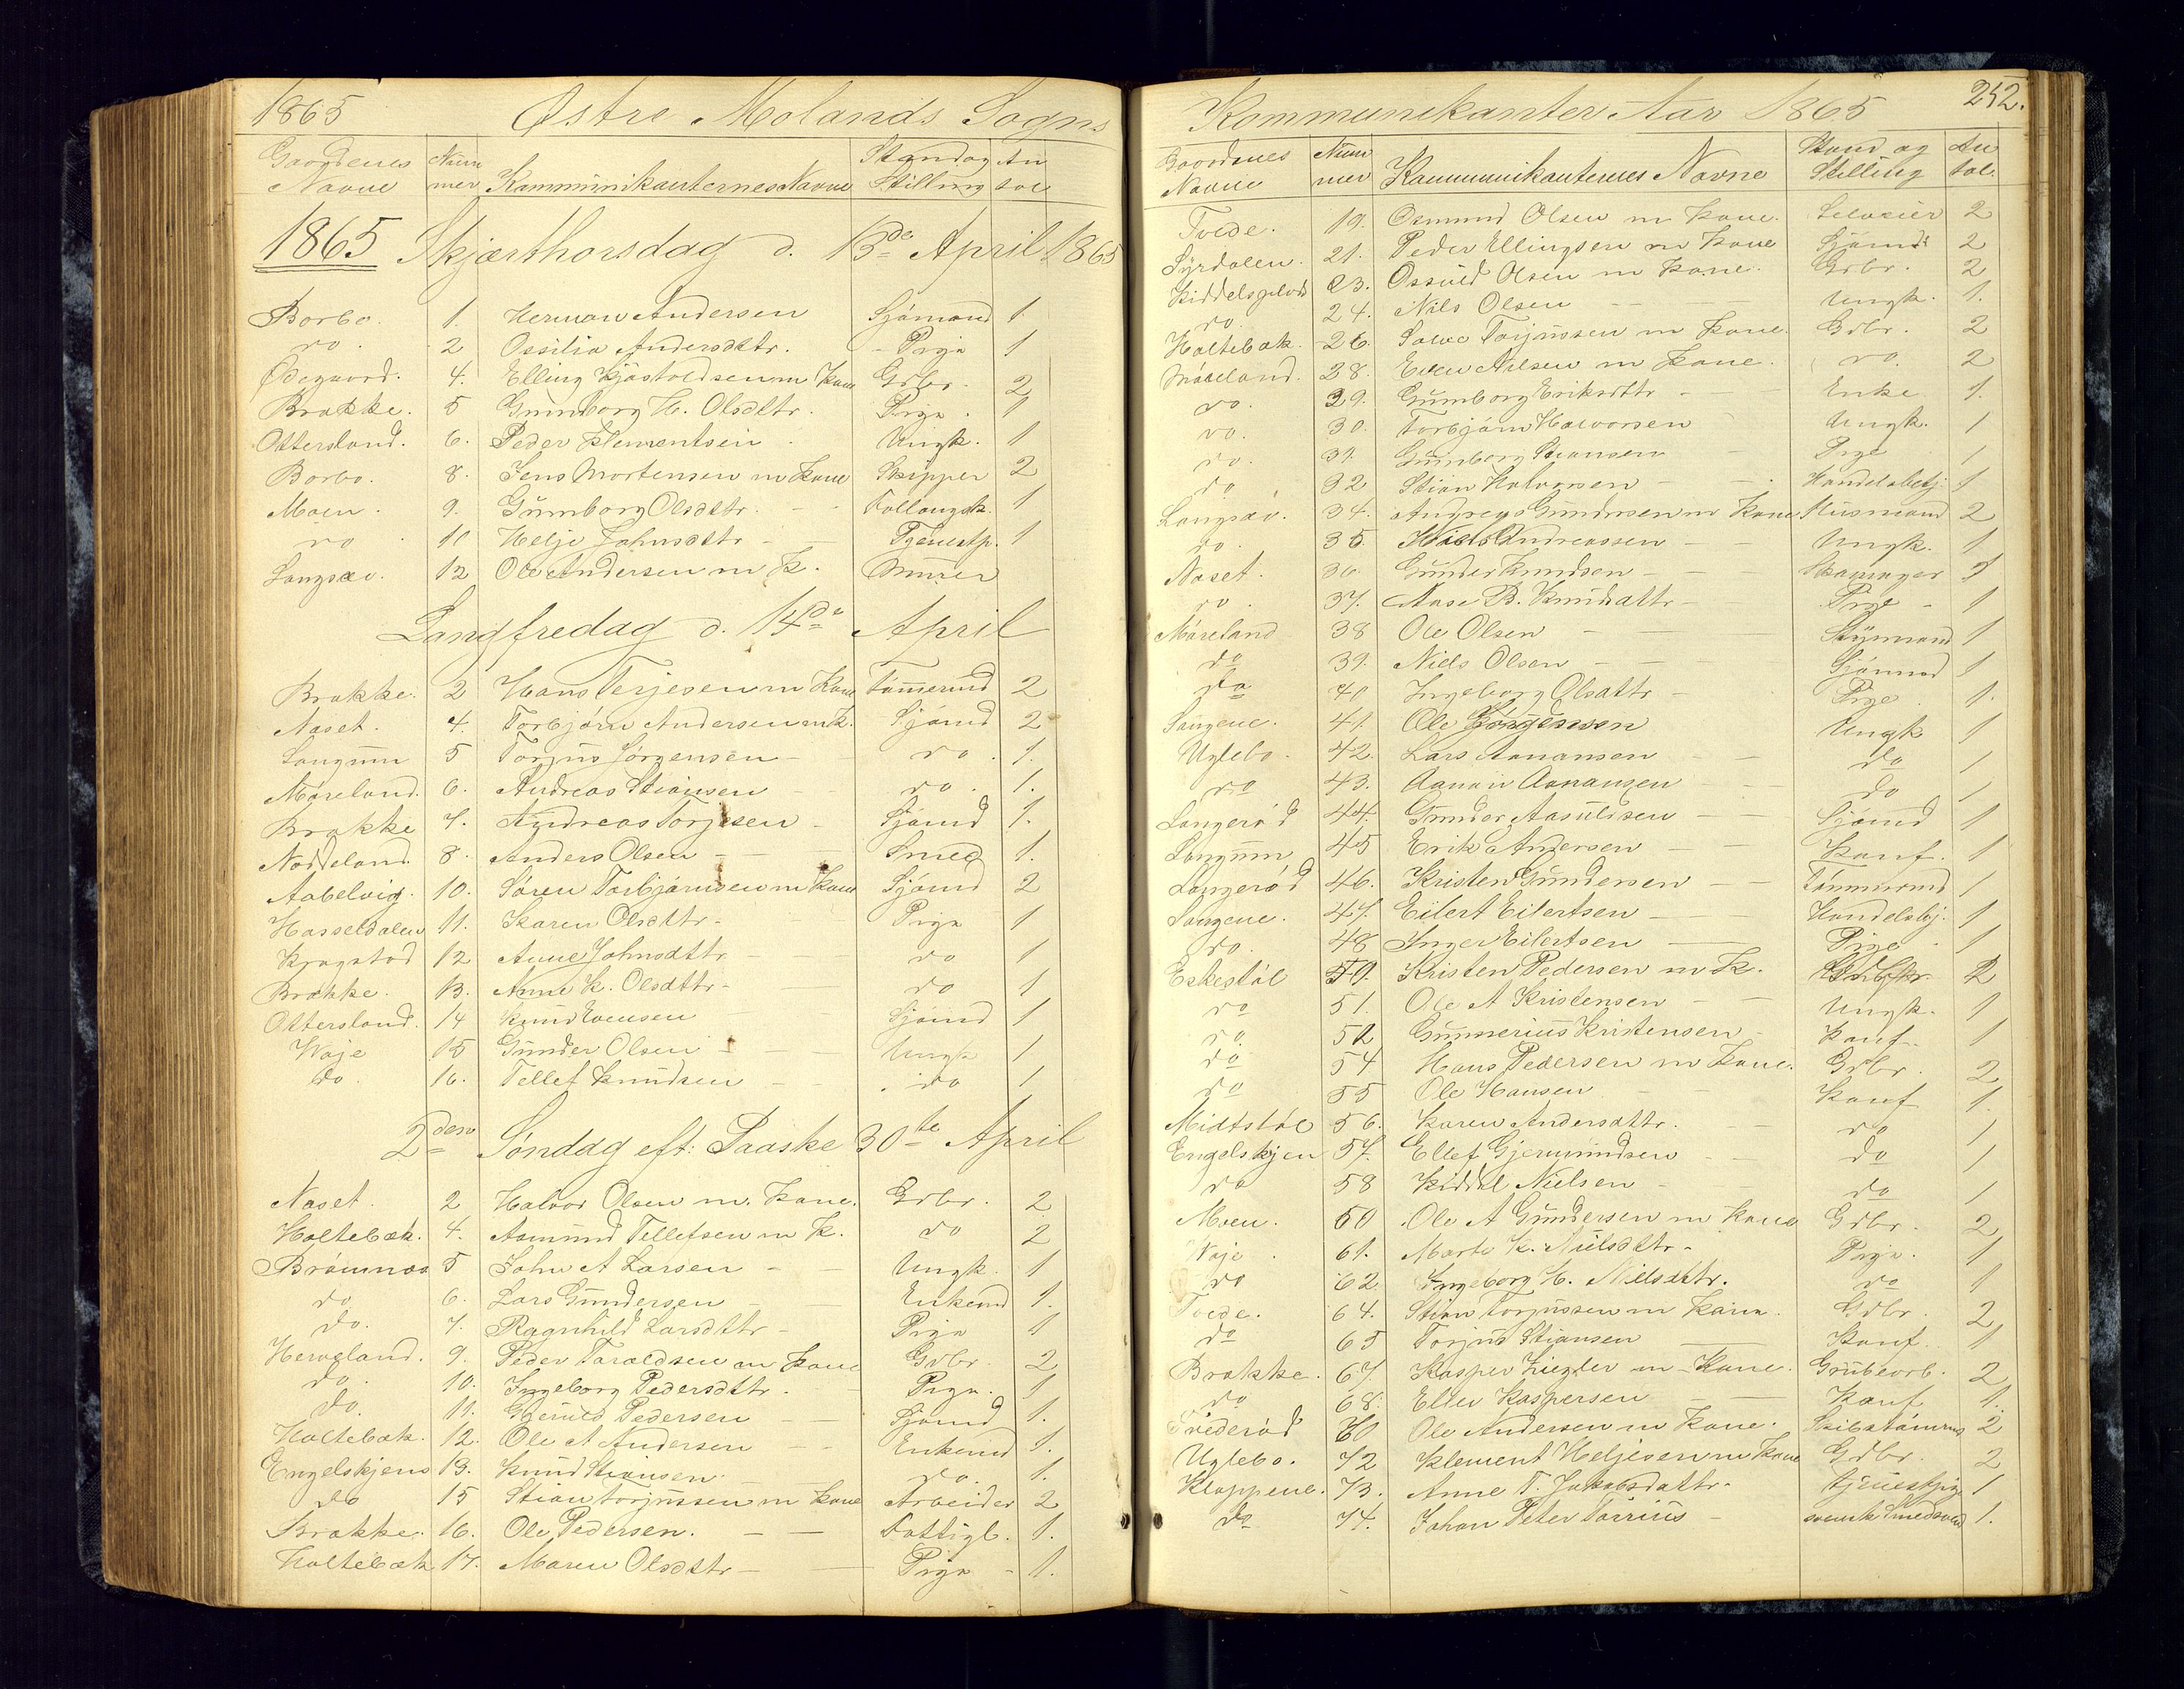 1865 Østre Molands Sogns
Gaardenes Navne Num mer Kammunikanternes Navne Stand og Stilling An tal
1865 Skjærthorsdag d. 13de April 1865
Borbo. 1. Herman Andersen Sjömand 1.
do. 2 Ossilia Andersdttr. Pige 1
Ødegaard. 4. Elling Kjöstoldsen m Kone Grbr. 2
Brakke. 5 Gunnborg H. Olsdttr. Pige. 1
Ottersland. 6. Peder Klementsen Ungk. 1
Borbo. 8. Jens Mortensen m Kone Skipper 2
Moen. 9. Gunborg Olsdttr. 1
do 10 Helje Johnsdttr Tjenestp. 1
Langsæv. 12 Ole Andersen m K. Murer
Langfredag d. 14de April
Brakke. 2 Hans Terjesen m Kone Tömermd 2
Naset. 4. Torbjörn Andersen m K. Sjömd 2
Langmn 5 Torjus Jörgensen do. 1.
Möreland. 6. Andreas Stiansen do. 1.
Brakke 7. Andreas Torjesen Sjömd 1.
Nodeland. 8. Anders Olsen Smed 1.
Aabelvig. 10. Sören Torbjörnsen m Kone Sjömd 2
Hasseldalen 11. Karen Olsdttr. Pige 1
Krogstad 12 Anne Johnsdttr do 1
Brakke. 13. Anne K. Olsdttr do 1
Ottersland. 14 Knud Evensen Sjömd 1
Waje 15 Gunder Olsen Ungk 1
do. 16. Tellef Knudsen do 1
2den Söndag eft: Paaske 30te April
Naset. 2 Halvor Olsen m. Kone. Grbr. 2
Holtebæk. 4. Asmund Tellefsen m K. do 2
Brömnæs 5 John A Larsen Ungk. 1
do 6. Lars Gundersen Enkemd 1.
do. 7. Ragnhild Larsdttr Pige 1
Herveland. 9. Peder Taraldsen m Kone Grbr. 2
do. 10. Ingeborg Pedersdttr. Pige. 1
do. 11. Pedersen Sjömd 1.
Holtebæk. 12. Ole A Andersen Enkemd 1.
Engelskjens 13. Knud Stiansen do. 1.
do 15 Stian Torjussen m Kone Arbeider 2
Brakke. 16. Ole Pedersen. Fattigl. 1.
Holtebæk 17. Maren Olsdttr Pige 1.
Kommunikanter Aar 1865 252.
Gaardenes Navne Num mer Kammunikanternes Navne Stand og Stilling An tal.
Tvede. 19. Osmund Olsen m Kone. Selveier 2
Syrdalen. 21. Peder Ellingsen m Kone Sjömd 2
23. Ossuld Olsen m Kone. Grbr. 2
do 24. Nils Olsen Ungk. 1.
Holtebæk. 26. Torjussen m Kone. Grbr. 2
Möreland. 28. Even Nilsen m Kone. do. 2
do. 29. Gunborg Eriksdttr Enke 1.
do. 30. Torbjörn Halvorsen Ungk. 1
do. 31. Gunborg Stiansen Pige 1
do 32 Stian Halvorsen Handelsbetj. 1
Langsæv. 34. Andreas Gundersen m Kone Husmand 2
do. 35. Niels Andreassen Ungk. 1
Naset. 36. Gunder Knudsen 1
do. 37. Aase B. Knudsdttr Pige 1
Möreland 38 Ole Olsen Styrmand 1
do 39. Niels Olsen Sjömand 1
do 40 Ingeborg Olsdttr Pige 1.
Langene. 41. Ole Ungk 1
Uglebo. 42. Lars Aanonsen do 1
do 43. Aanon Aanonsen do 1
Langeröd 44. Gunder Aasuldsen Sjömd 1
Langmn 45 Erik Andersen Konf. 1
Langeröd 46. Kristen Gundersen Tömmermd 1
Langene. 47. Eilert Eilertsen Handelsbj. 1
do. 48 Inger Eilertsen Pige 1
Eskestöl 50. Kristen Pedersen m K. 2
do 51. Ole A Kristensen Ungk. 1
do 52 Gunnerius Kristensen Konf. 1
do 54 Hans Pedersen m Kone. Grbr. 2
do 55 Ole Hansen Konf 1.
Midtstöl 56. Karen Andersdttr. do 1
Engelskjen 57. Ellef Gjermundsen do 1
do 58 Kiddel Nielsen do 1
Moen. 60 Ole A Gundersen m Kone Grbr. 2
Waje. 61. Marte K. Nielsdttr. Pige. 1
do 62. Ingeborg H. Nielsdttr. do 1
Tvede. 64. Stian Torjussen m Kone. Grbr. 2
do 65 Torjus Stiansen Konf. 1
Brakke. 67. Kasper Ziegler m Kone. Grubearb. 2
do 68. Ellev Kaspersen Konf 1.
70 Ole Andersen m Kone. Skibstömrm 2
Uglebo. 72 Klement Heljesen m Kone Grbr. 2
Kloppene. 73. Anne T. Jakobsdattr. tjenestpige 1
do 74. Johan Peter svensk 1.